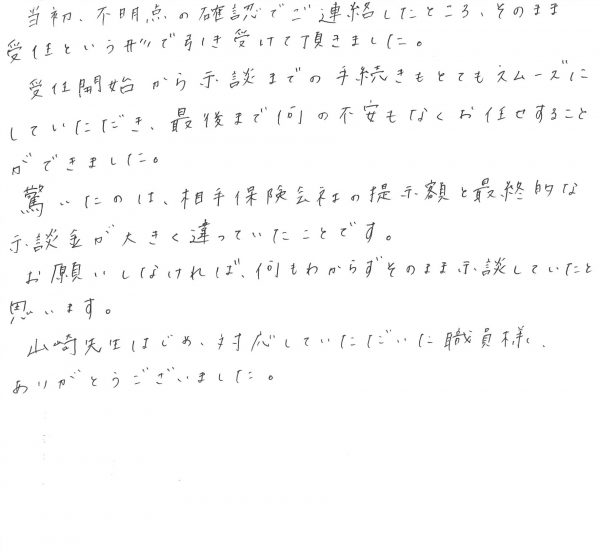 当初、不明点の確認でご連絡したところ、そのまま
受任という形で引き受けて頂きました。
受任開始から示談までの手続きもとてもスムーズに
していただき、最後まで何の不安もなくお任せすること
ができました。
驚いたのは、相手保険会社の提示額と最終的な
示談金が大きく違っていたことです。
お願いしなければ、何もわからずそのまま示談していたと
思います。
山崎先生はじめ、対応していただいた職員様、
ありがとうございました。